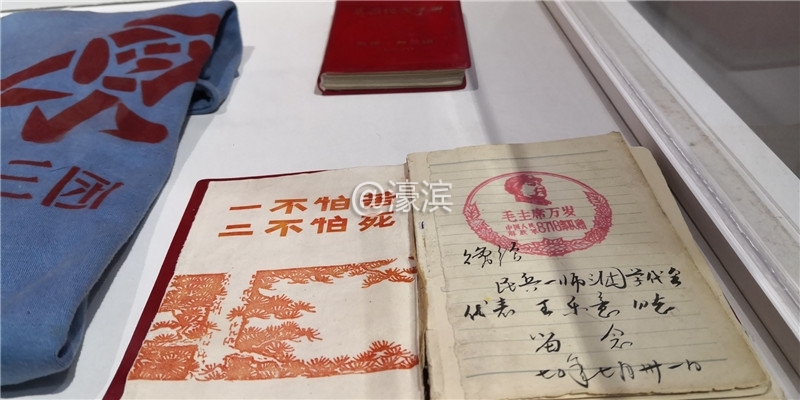 三团
一不怕苦
二不怕死
@濠滨
毛主席万岁
中国人民
赠给
民兵一师三团学代会
代表 王乐意 同志
留念
七0年七月卅一日